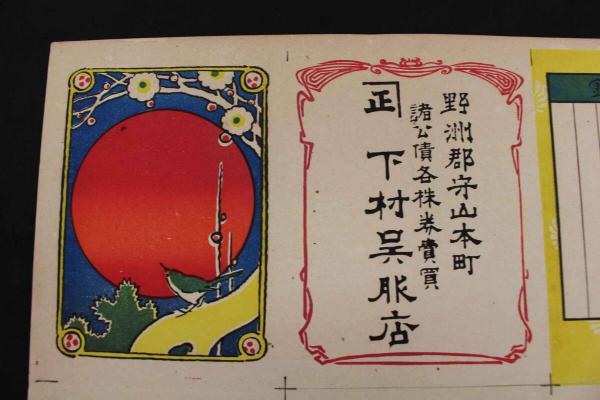 野洲郡守山本町
諸公債各株券賣買
正 下村呉服店